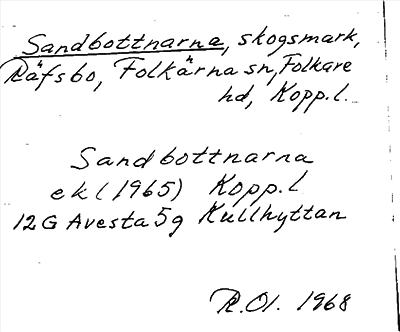 Sandbottnarna, skogsmark,
Räfsbo, Folkärna sn, Folkare
hd, Kopp. l.
Sandbottnarna
ek (1965) Kopp. l
12G Avesta 5g Kullhyttan
R. Ol. 1968